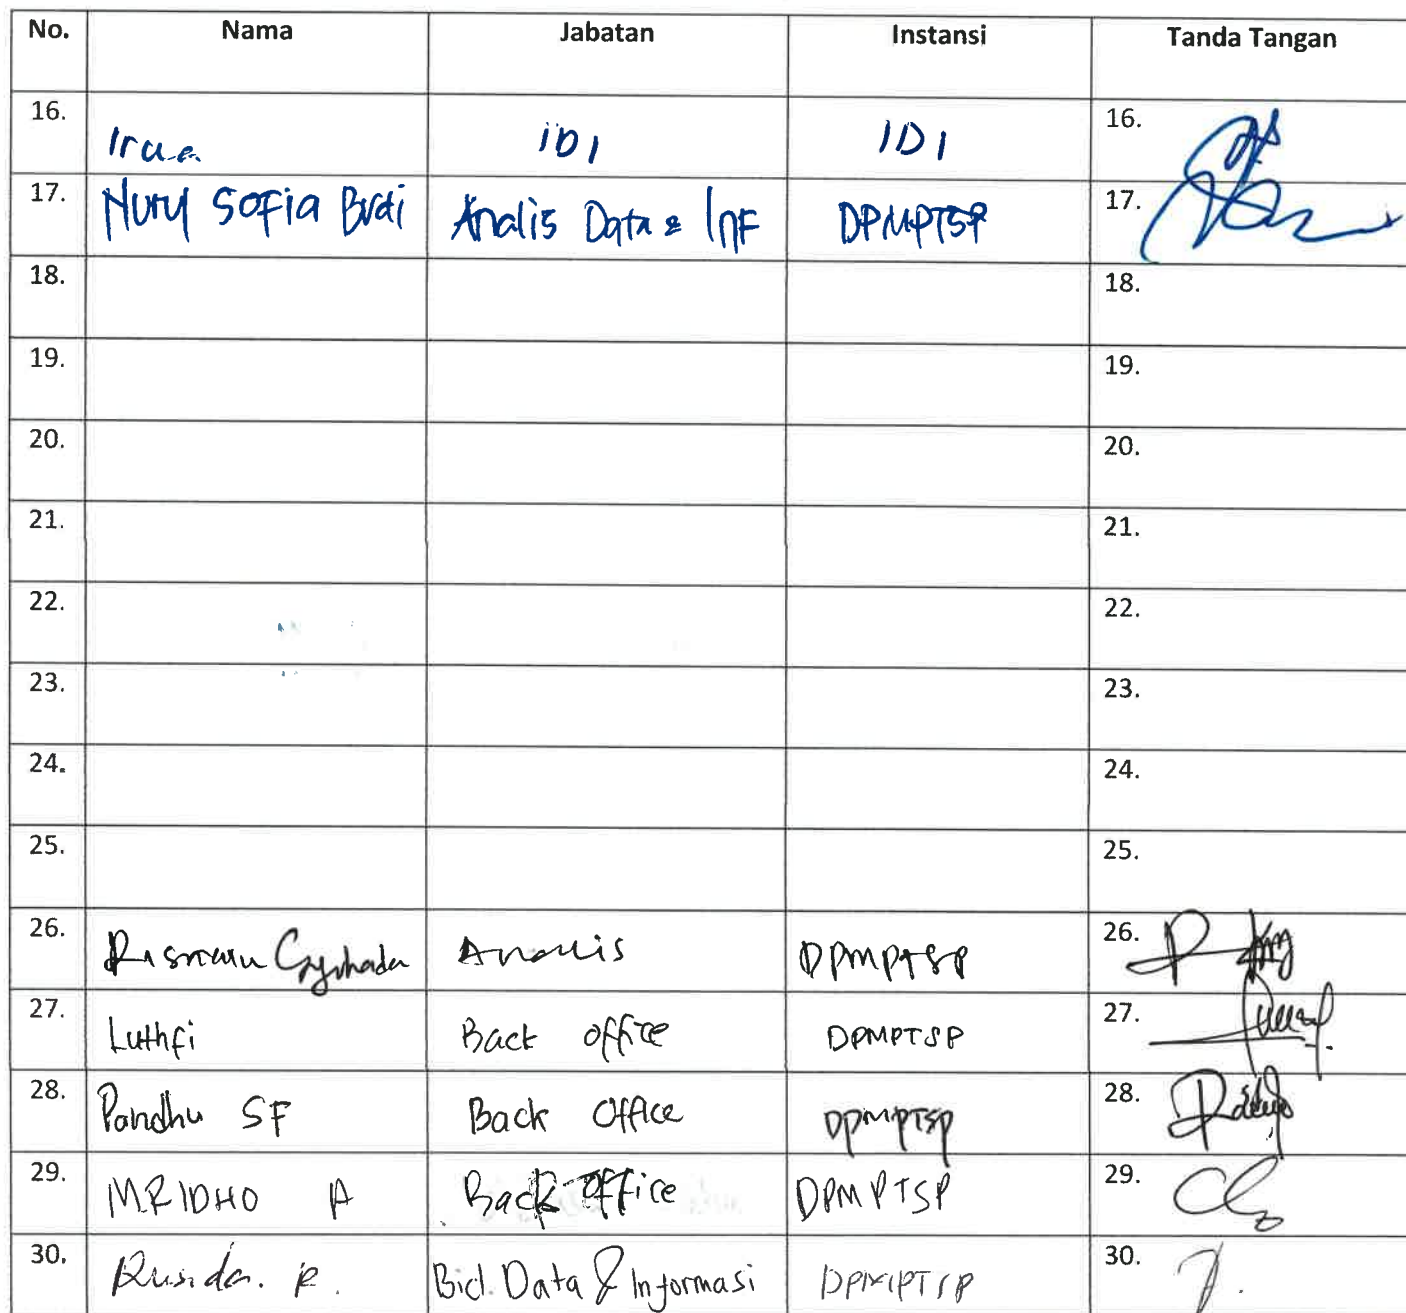 No. Nama Jabatan Instansi Tanda Tangan
16. IDI IDI 16.
17. Nury Sofia Budi Analis Data & Inf DPMPTSP 17.
18. 18.
19. 19.
20. 20.
21. 21.
22. 22.
23. 23.
24. 24.
25. 25.
26. Analis DPMPTSP 26.
27. Luthfi Back office DPMPTSP 27.
28. Pandhu SF Back Office DPMPTSP 28.
29. M.RIDHO A Back Office DPMPTSP 29.
30. Rusida. R. Bid. Data & Informasi DPMPTSP 30.